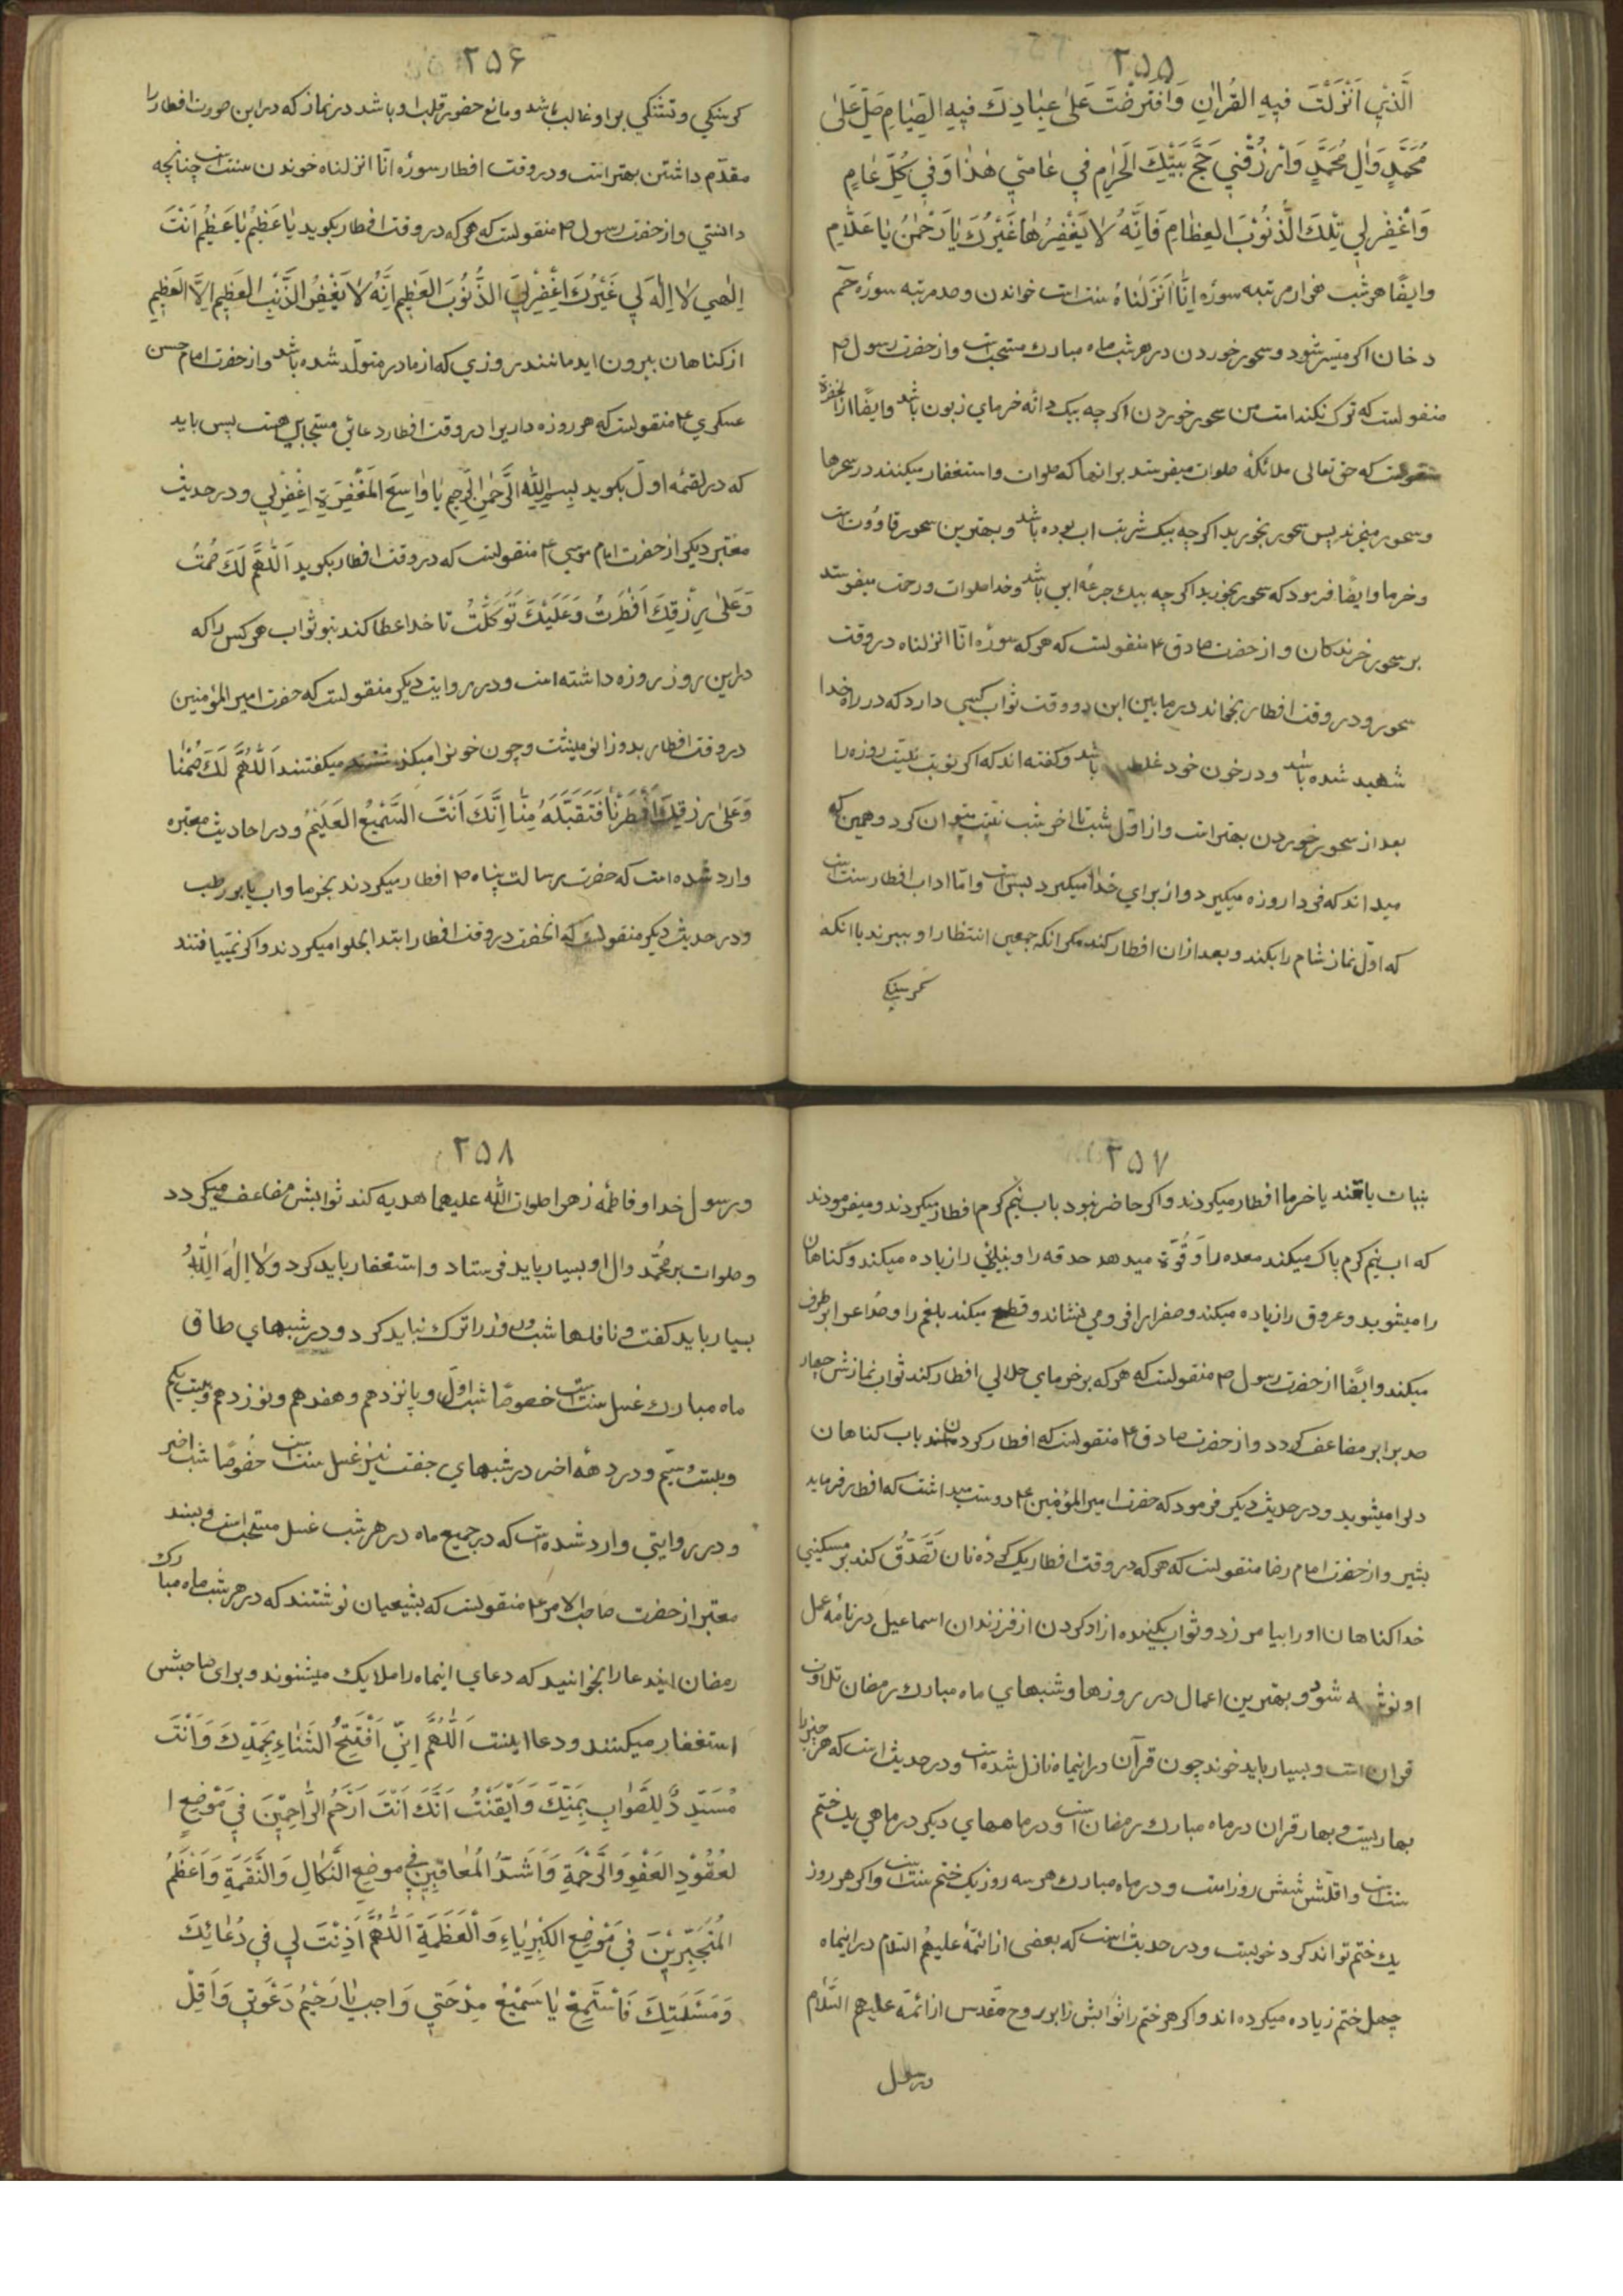 ۲۵۵
الَّذِي اَنْزَلْتَ فِيهِ القُرْاٰنِ وَافْتَرَضْتَ عَلىٰ عِبٰادِكَ فيهِ الصِّيٰامِ صَلِّ عَلىٰ
مُحَمَّدٍ وَاٰلِ مُحَمَّدٍ وَارْزُقْنِي حَجَّ بَيْتِكَ الْحَرٰامِ فِي عٰامِي هٰذٰا وَفِي كُلِّ عٰامٍ
وَاغْفِرْلِي تِلْكَ الذُّنُوْبَ العِظٰامِ فَاِنَّهُ لٰا يَغْفِرُهٰا غَيْرُكَ يٰا رَحْمٰنُ يٰا عَلّٰامِ
وايضًا هر شب هزار مرتبه سوره اِنّٰا اَنْزَلْنٰاهُ سنت است خواندن وصد مرتبه سوره حٓم
دخان اكر ميسّر شود وسحور خوردن در هر شب ماه مبارك مستحب است واز حضرت رسول ص
منقولست كه ترك نكند امت من سحور خوردن اكر چه بيك دانه خرماي زبون باشد وايضًا از انحضرة
منقولست كه حق تعالى ملائكه صلوات ميفرستد برانها كه صلوات واستغفار ميكنند در سحرها
وسحور ميخرند پس سحور بخوريد اكر چه بيك شربت اب بوده باشد وبهترين سحور قاووت است
وخرما وايضًا فرمود كه سحور بخوريد اكر چه بيك جرعه ابي باشد وخدا صلوات ورحمت ميفرستد
بر سحور خرندكان واز حضرت صادق ع منقولست كه هر كه سوره انّا انزلناه در وقت
سحور ودر وقت افطار بخواند در مابين اين دو وقت ثواب كسي دارد كه در راه خدا
شهيد شده باشد ودر خون خود غلط باشد وكفته اند كه اكر نوبت نيّت روزه را
بعد از سحور خوردن بهتر است واز اول شب تا اخر شب نيّت ميتوان كرد وهمين كه
ميداند كه فردا روزه ميكيرد واز براي خدا ميكيرد بس است وامّا اداب افطار سنت است
كه اوّل نماز شام را بكند وبعد ازان افطار كند مكر انكه جمعي انتظار او ببرند يا انكه
كرسنكي
۲۵۶
كرسنكي وتشنكي بر او غالب باشد ومانع حضور قلب او باشد در نماز كه در اين صورت افطار را
مقدّم داشتن بهتر است ودر وقت افطار سوره انّا انزلناه خوندن سنت است چنانچه
دانستي واز حضرت رسول ص منقولست كه هر كه در وقت افطار بكويد يٰا عَظِيْمُ يٰا عَظِيْمُ اَنْتَ
اِلٰهِي لٰا اِلٰهَ لِي غَيْرُكَ اِغْفِرْلِيَ الذُّنُوْبَ العَظِيم اِنَّهُ لٰا يَغْفِرُ الذَّنْبَ العَظِيمِ اِلَّا العَظِيمِ
از كناهان بيرون ايد مانند روزي كه از مادر متولّد شده باشد واز حضرت امام حسن
عسكري ع منقولست كه هر روزه دار يرا در وقت افطار دعائي مستجابي هست پس بايد
كه در لقمه اوّل بكويد بِسْمِ اللهِ الرَّحْمٰنِ الرَّحِيم يٰا وٰاسِعَ المَغْفِرَةِ اِغْفِرْلِي ودر حديث
معتبر ديكر از حضرت امام موسي ع منقولست كه در وقت افطار بكويد اَللّٰهُمَّ لَكَ صُمْتُ
وَعَلىٰ رِزْقِكَ اَفْطَرْتُ وَعَلَيْكَ تَوَكَّلْتُ تا خدا عطا كند بتو ثواب هر كس را كه
دراين روز روزه داشته است ودر روايت ديكر منقولست كه حضرت امير المؤمنين
در وقت افطار بدو زانو مينشت وچون خونرا ميكذشتند ميكفتند اَللّٰهُمَّ لَكَ صُمْنٰا
وَعَلىٰ رِزْقِكَ اَفْطَرْنٰا فَتَقَبَّلَهُ مِنّٰا اِنَّكَ اَنْتَ السَّمِيْعُ العَلِيْمُ ودر احاديث معتبره
وارد شده است كه حضرت رسالت پناه ص افطار ميكردند بخرما واب يا بر رطب
ودر حديث ديكر منقولست كه انحضرت در وقت افطار ابتدا بحلوا ميكردند واكر نمييافتند
۲۵۷
بنبات يا قند يا خرما افطار ميكردند واكر حاضر نبود باب نيم كرم افطار ميكردند وميفرمودند
كه اب نيم كرم پاك ميكند معده را وَقُوّة ميدهد حدقه را وبينائي را زياده ميكند وكناهان
را ميشويد وعروق را زياده ميكند وصفرا را فرو مي نشاند وقطع ميكند بلغم را وصُداعرا برطرف
ميكند وايضًا از حضرت رسول ص منقولست كه هر كه بر خرماي حلالي افطار كند ثواب نمازش چهار
صد برابر مضاعف كردد واز حضرت صادق ع منقولست كه افطار كردن باب كناهان
دلرا ميشويد ودر حديث ديكر فرمود كه حضرت امير المؤمنين ع دوست ميداشت كه افطار فرمايد
بشير واز حضرت امام رضا منقولست كه هر كه در وقت افطار يك كرده نان تَصَدُّق كند بر مسكيني
خدا كناهان اورا بيا مرزد وثواب يكبنده ازاد كردن از فرزندان اسماعيل در نامه عمل
او نوشته شود وبهترين اعمال در روزها وشبهاي ماه مبارك رمضان تلاوت
قران است وبسيار بايد خوند چون قرآن در انيماه نازل شده است ودر حديث است كه هر چيزيرا
بهاريست وبهار قران در ماه مبارك رمضان است ودر ماههاي ديكر در ماهي يك ختم
سنت است واقلّش شش روز است ودر ماه مبارك هر سه روز يك ختم سنت است واكر هر روز
يك ختم تواند كرد خوبست ودر حديث است كه بعضي از ائمّه عليهم السلام در اينماه
چهل ختم زياده ميكرده اند واكر هر ختم را ثوابش را بر روح مقدس از ائمّه عليهم السَّلام
ورسول
۲۵۸
ورسول خدا وفاطمه زهرا صلوات الله عليهما هديه كند ثوابش مضاعف ميكردد
وصلوات بر محمّد وال او بسيار بايد فرستاد واستغفار بايد كرد ولٰا اِلٰهَ اِلَّا اللهُ
بسيار بايد كفت ونافلها شب وروز را ترك نبايد كرد ودر شبهاي طاق
ماه مبارك غسل سنت است خصوصًا شب اوّل وپانزدهم وهفدهم ونوزدهم وبيست يكم
وبيست وسيّم ودر دهه اخر در شبهاي جفت نيز غسل سنت است خصُوصًا شب اخير
ودر روايتي وارد شده است كه در جميع ماه در هر شب غسل مستحب است وبسند
معتبر از حضرت صاحب الامر ع منقولست كه بشيعيان نوشتند كه در هر شب ماه مبارك
رمضان ايندعا را بخوانيد كه دعاي اينماه را ملايك ميشنوند وبراي صاحبش
استغفار ميكنند ودعا اينست اَللّٰهُمَّ اِنِّي اَفْتَتِحُ الثَّنٰاءَ بِحَمْدِكَ وَاَنْتَ
مُسَدِّدٌ لِلصَّوٰابِ بِمَنِّكَ وَاَيْقَنْتُ اَنَّكَ اَنْتَ اَرْحَمُ الرّٰاحِمِيْنَ فِي مَوْضِعِ ا
لعُقُوْدِ العَفْوِ وَالرَّحْمَةِ وَاَشَدُّ المُعٰاقِبِيْنِ فِي مَوضِعِ النَّكٰالِ وَالنَّقَمَةِ وَاَعْظَمُ
المُتَجَبِّرِيْنَ فِي مَوْضِعِ الكِبْرِيٰاءِ وَالْعَظَمَةِ اَللّٰهُمَّ اَذِنْتَ لِي فِي دُعٰائِكَ
وَمَسْئَلَتِكَ فَاسْتَمِعْ يٰا سَمِيْعُ مِدْحَتِي وَاَجِبْ يٰا رَحِيْمُ دَعْوَتِي وَاَقِلْ